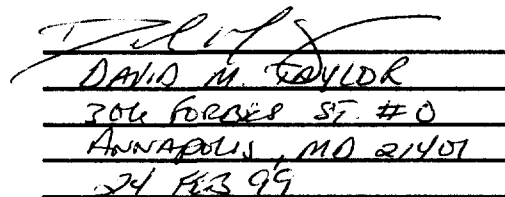 DAVID M. TAYLOR
306 FORBES ST. #D
ANNAPOLIS, MD 21401
24 FEB 99